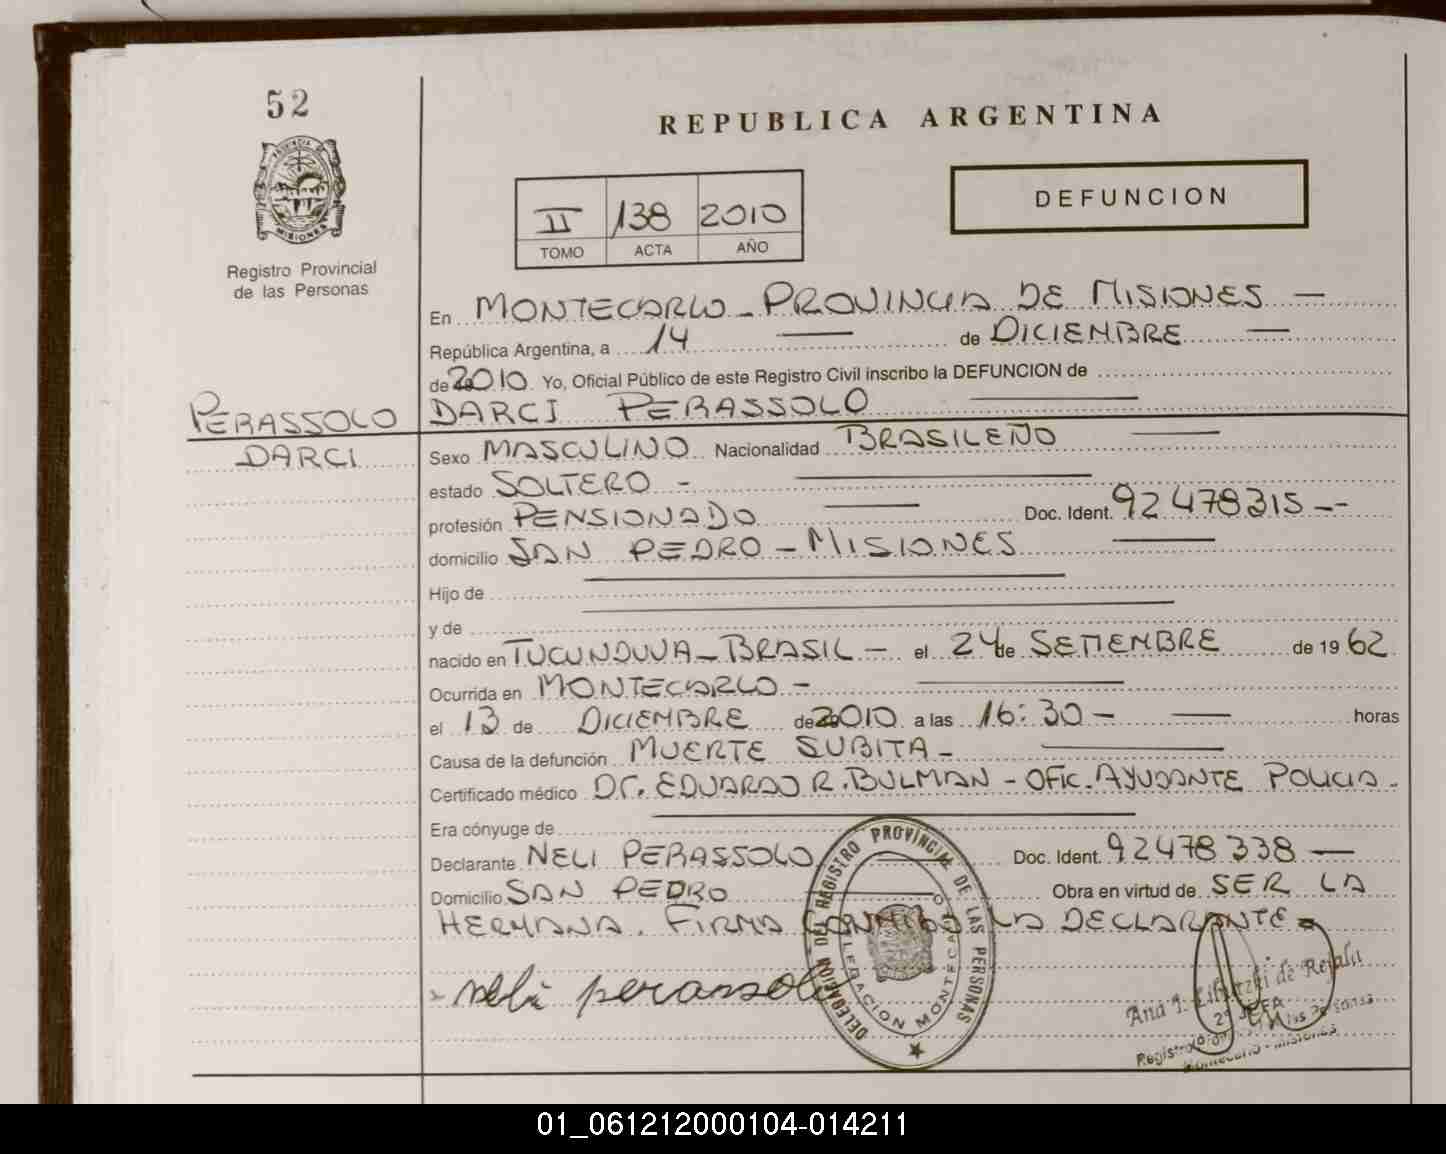 52
REPUBLICA ARGENTINA
DEFUNCION
II 138 2010
TOMO ACTA AÑO
PROVINCIA DE
MISIONES
Registro Provincial
de las Personas
En MONTECARLO - PROVINCIA DE MISIONES —
República Argentina, a 14 — de DICIEMBRE —
de 2010 Yo, Oficial Público de este Registro Civil inscribo la DEFUNCION de
PERASSOLO
DARCI
DARCI PERASSOLO —
Sexo MASCULINO Nacionalidad BRASILEÑO —
estado SOLTERO - —
profesión PENSIONADO — Doc. Ident. 92478315 --
domicilio SAN PEDRO - MISIONES —
Hijo de —
y de —
nacido en TUCUNDUVA - BRASIL - el 24 de SETIEMBRE de 1962
Ocurrida en MONTECARLO - —
el 13 de DICIEMBRE de 2010 a las 16:30 - — horas
Causa de la defunción MUERTE SUBITA - —
Certificado médico Dr. EDUARDO R. BULMAN - OFIC. AYUDANTE POLICIA -
Era cónyuge de —
Declarante NELI PERASSOLO — Doc. Ident. 92478338 —
Domicilio SAN PEDRO — Obra en virtud de SER LA
HERMANA. FIRMA CONMIGO LA DECLARANTE -
neli perassolo
DELEGACION DEL REGISTRO PROVINCIAL DE LAS PERSONAS
DELEGACION MONTECARLO
Ana I. de Rejala
2º JEFA
Registro Prov. de las Personas
Montecarlo - Misiones
01_061212000104-014211